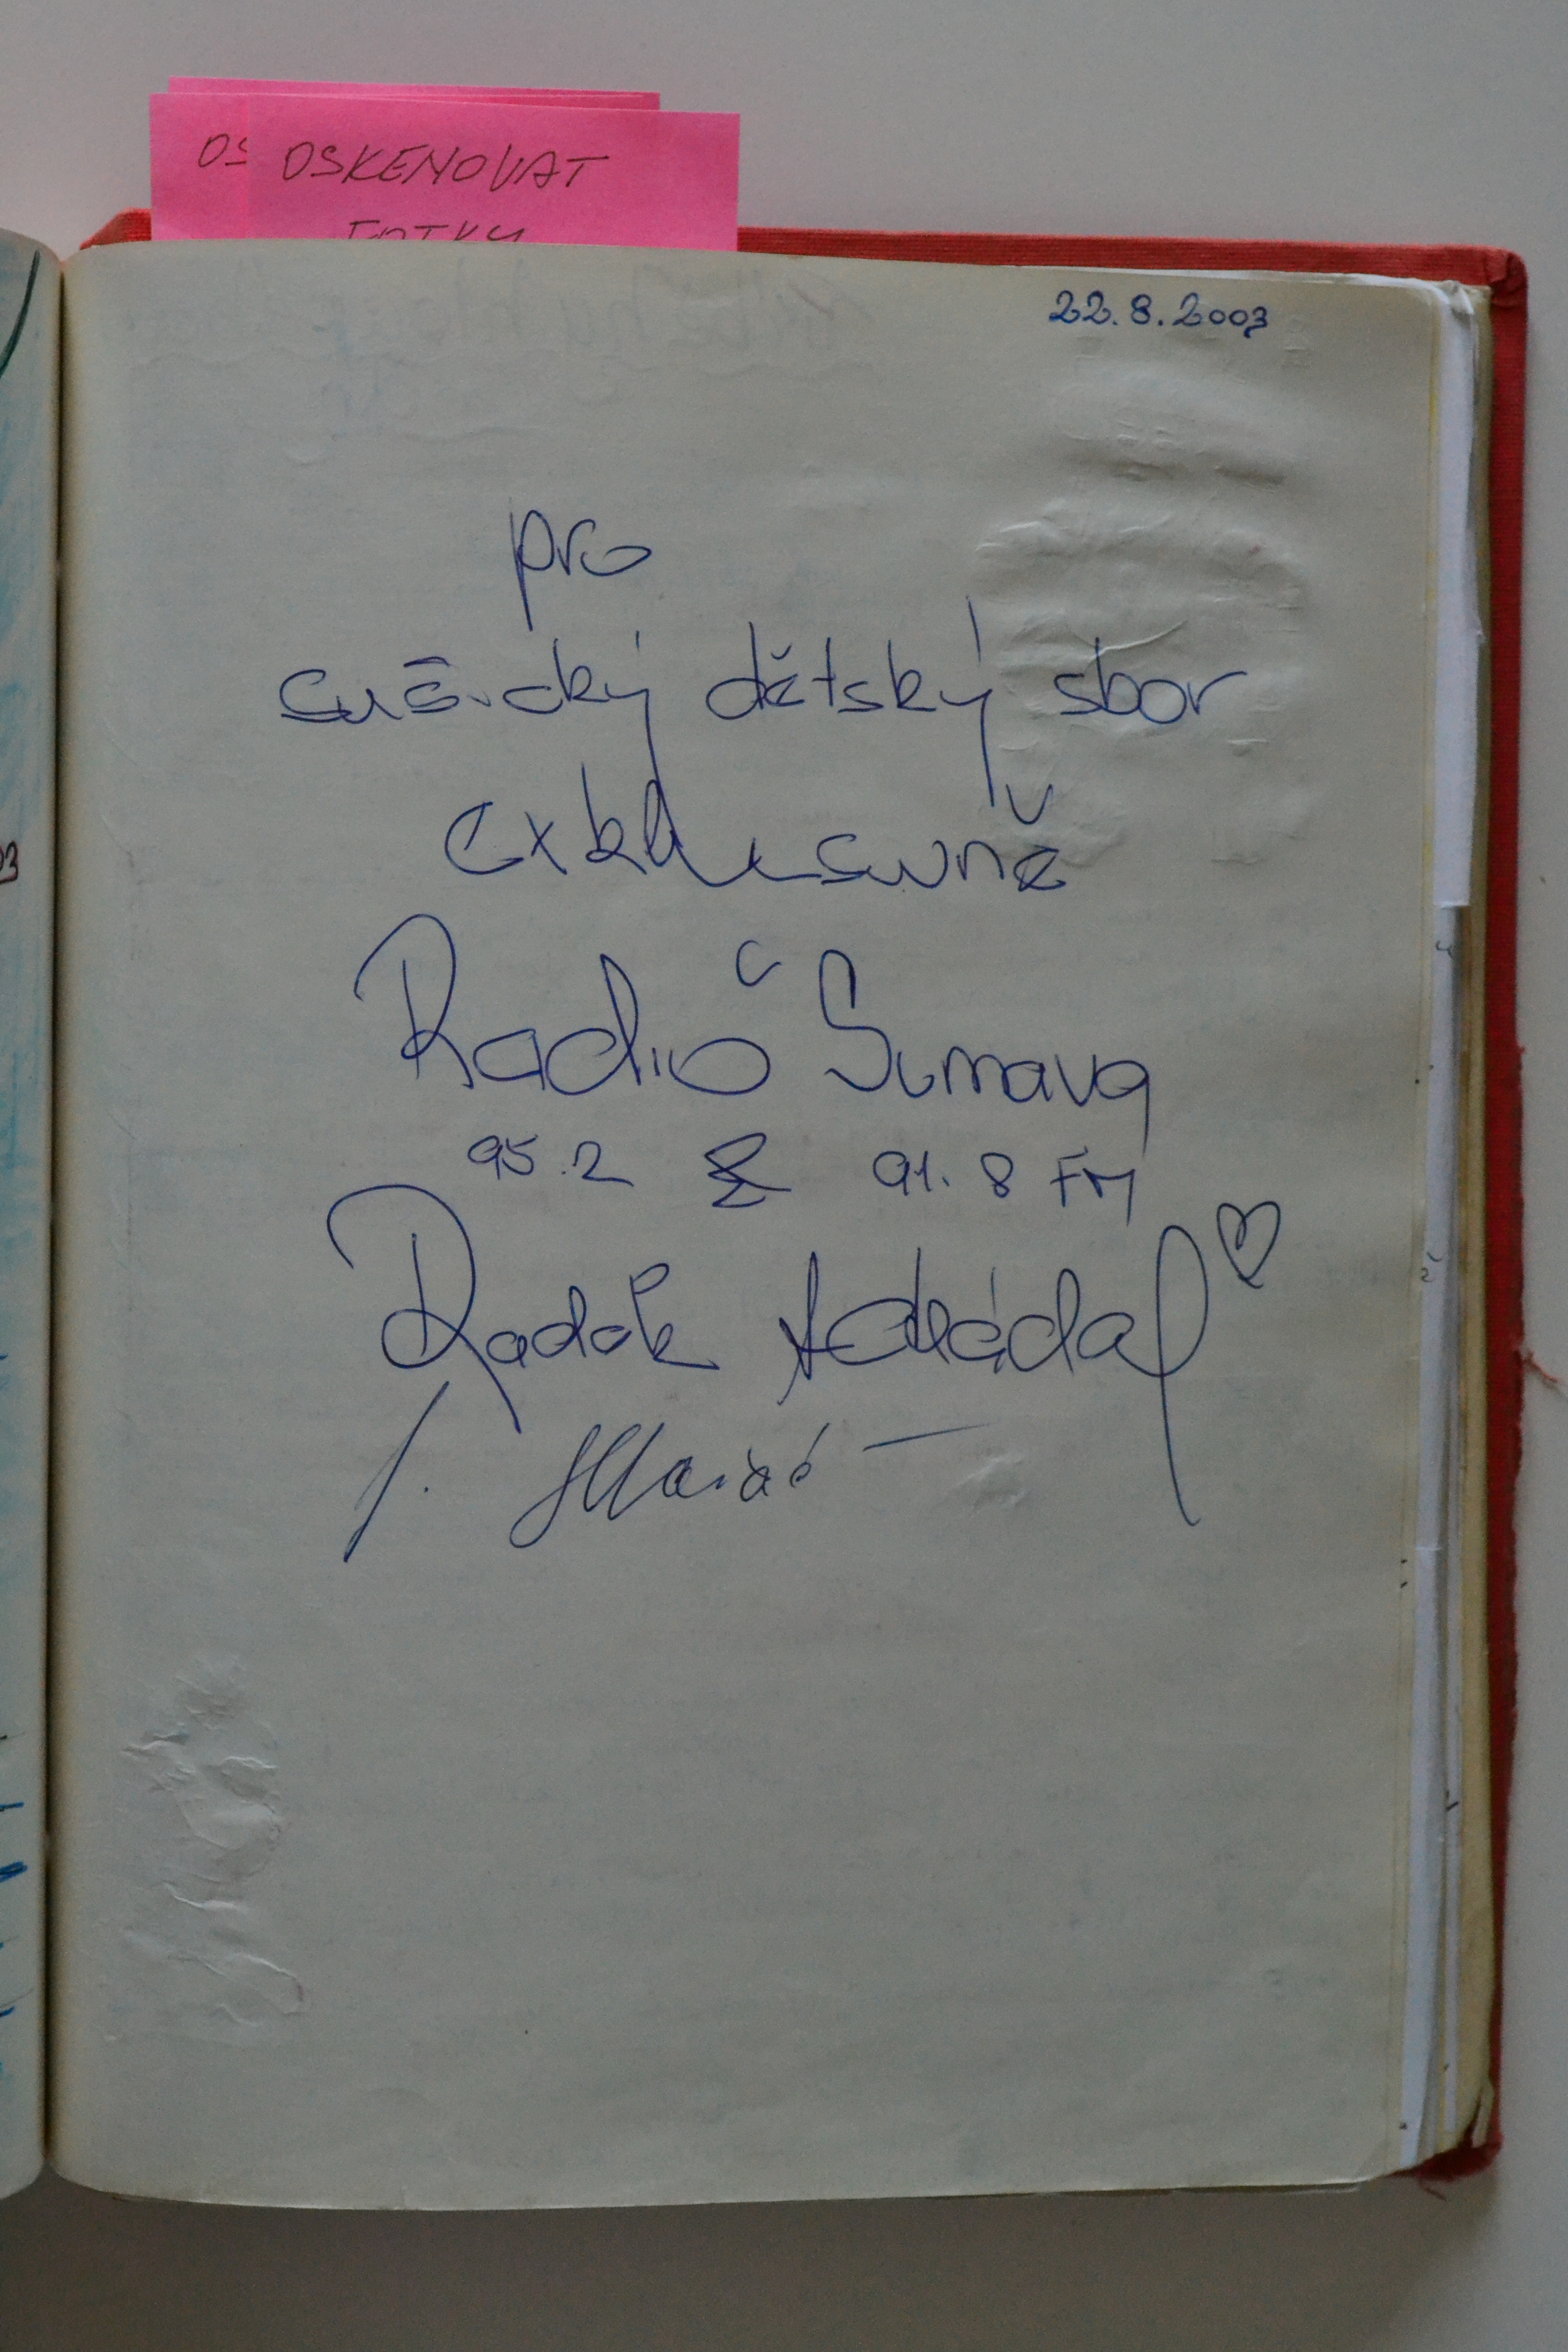 OS OSKENOVAT
FOTKY
22.8.2003
pro
sušický dětský sbor
exklusivně
Radio Šumava
95.2 & 91.8 FM
Radek